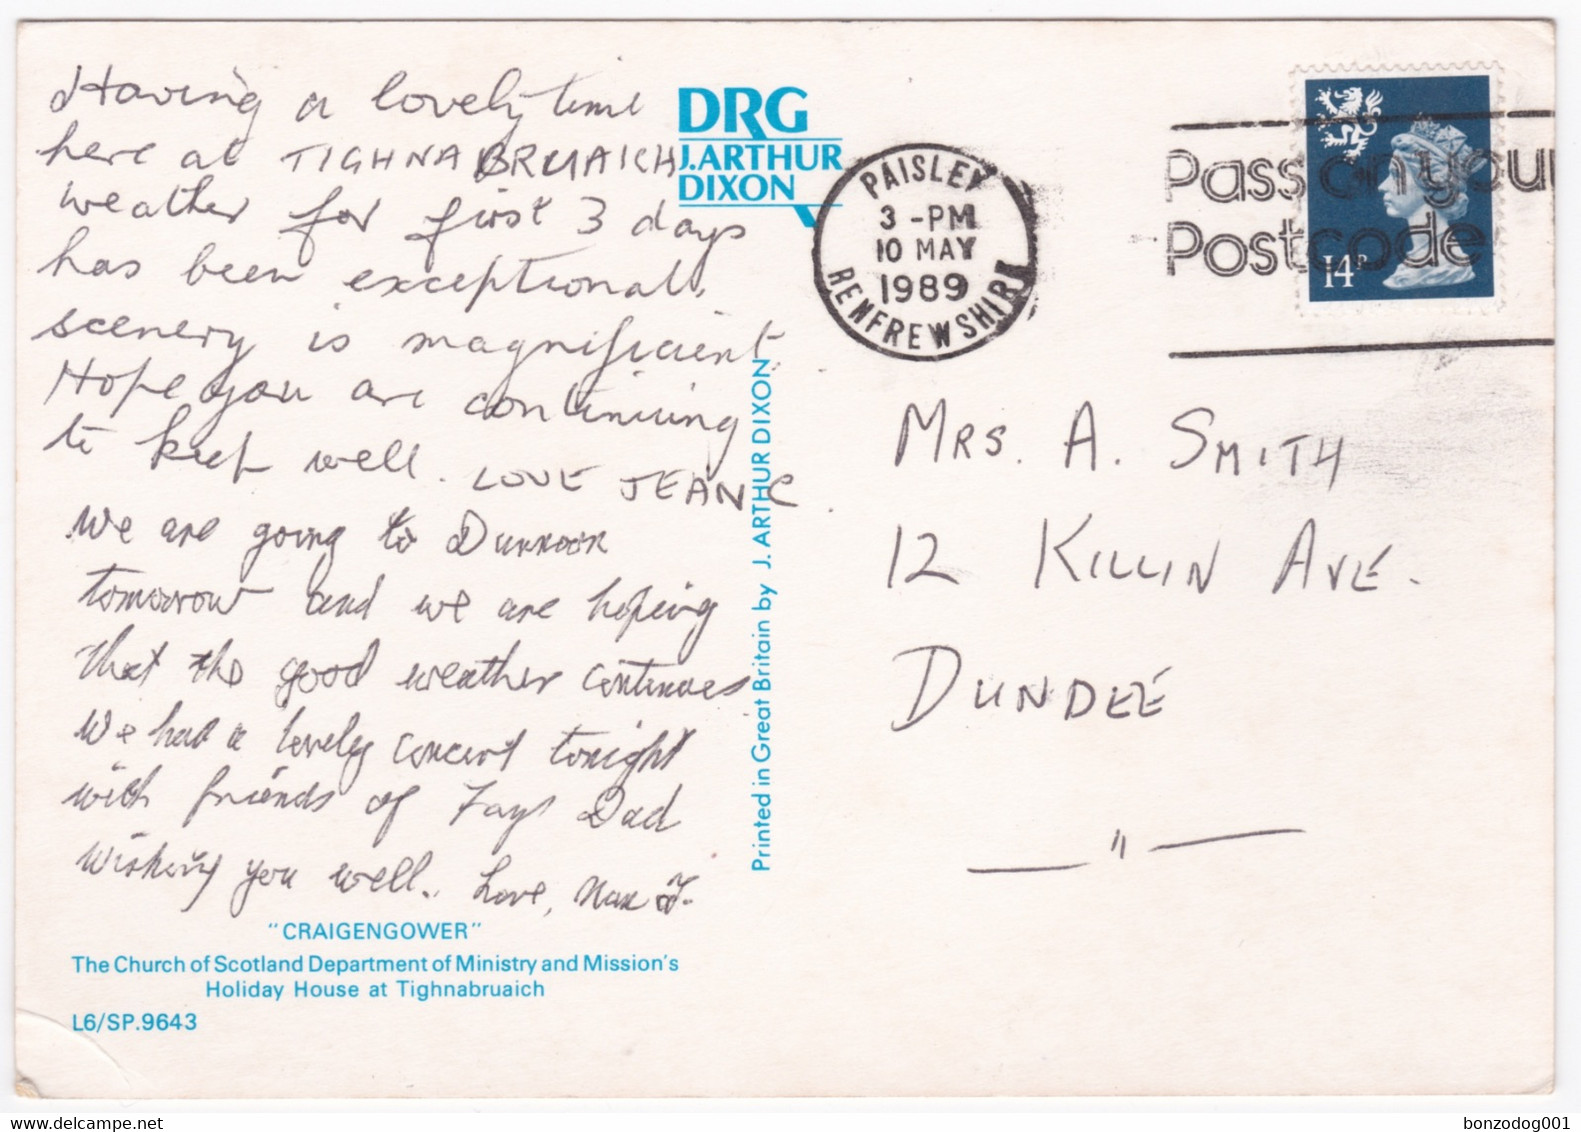 Having a lovely time
here at TIGHNABRUAICH
weather for first 3 days
has been exceptional,
scenery is magnificient.
Hope you are continuing
to keep well. LOVE JEAN C
We are going to Dunnoon
tomorrow and we are hoping
that the good weather continues
We had a lovely concert tonight
with friends of Fays Dad
Wishing you well. Love, Nan
"CRAIGENGOWER"
The Church of Scotland Department of Ministry and Mission's
Holiday House at Tighnabruaich
L6/SP.9643
DRG
J.ARTHUR
DIXON
Printed in Great Britain by J. ARTHUR DIXON
PAISLEY
3 -PM
10 MAY
1989
RENFREWSHIRE
Pass on your
Postcode
14P
MRS. A. SMITH
12 KILLIN AVE.
DUNDEE
— " —
bonzodog001